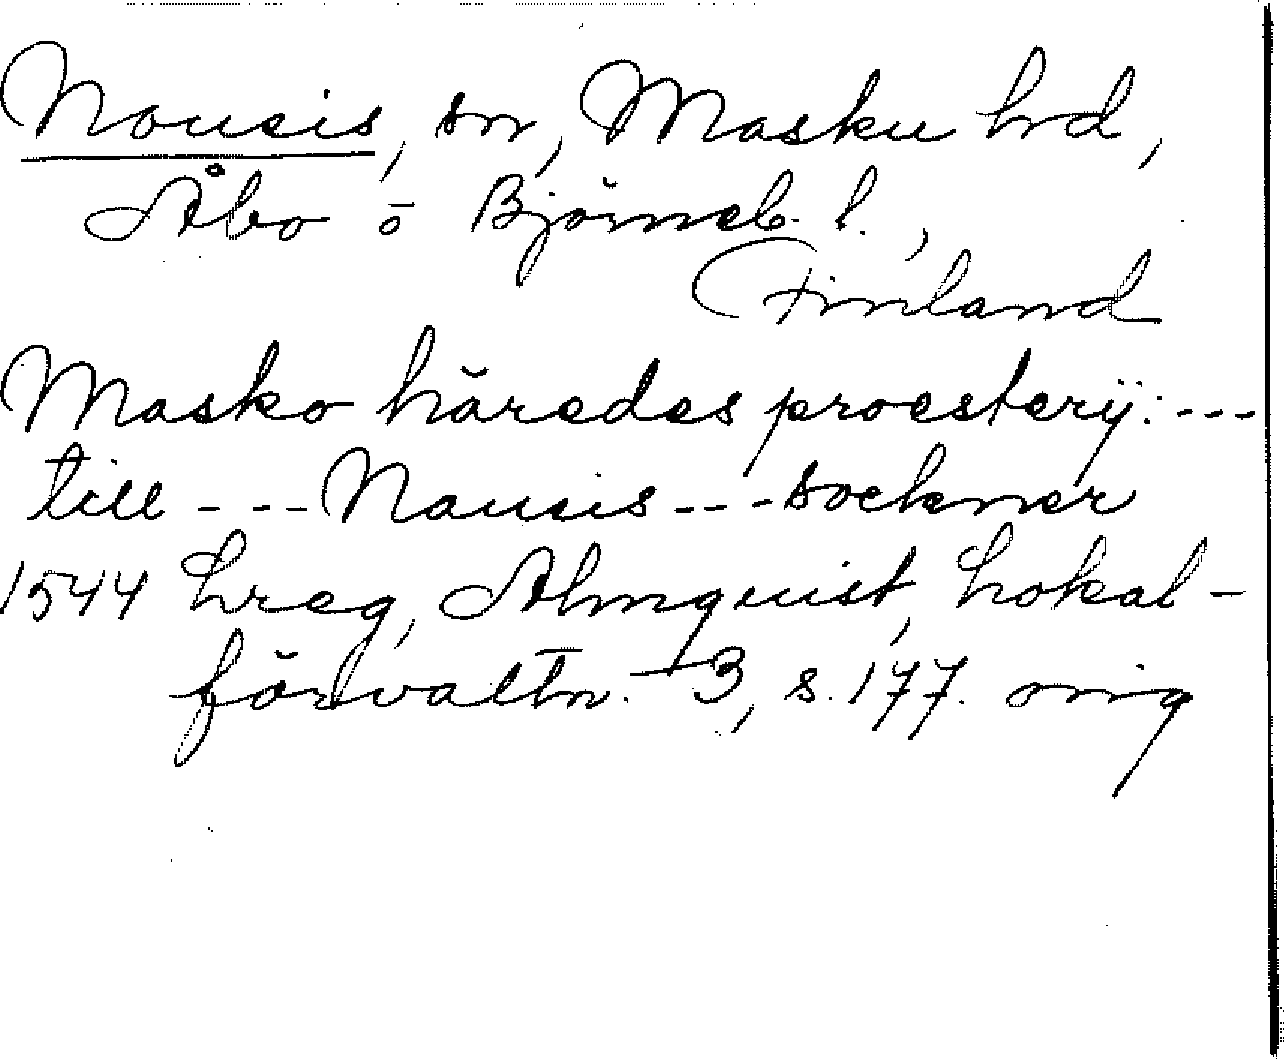 Nousis, sn, Masku hd,
Åbo o Björneb. l.,
Finland
Masko häredes proestery: ---
till --- Nausis --- sockner
1544 Lreg, Almquist, Lokal-
förvaltn. 3, s. 177. orig